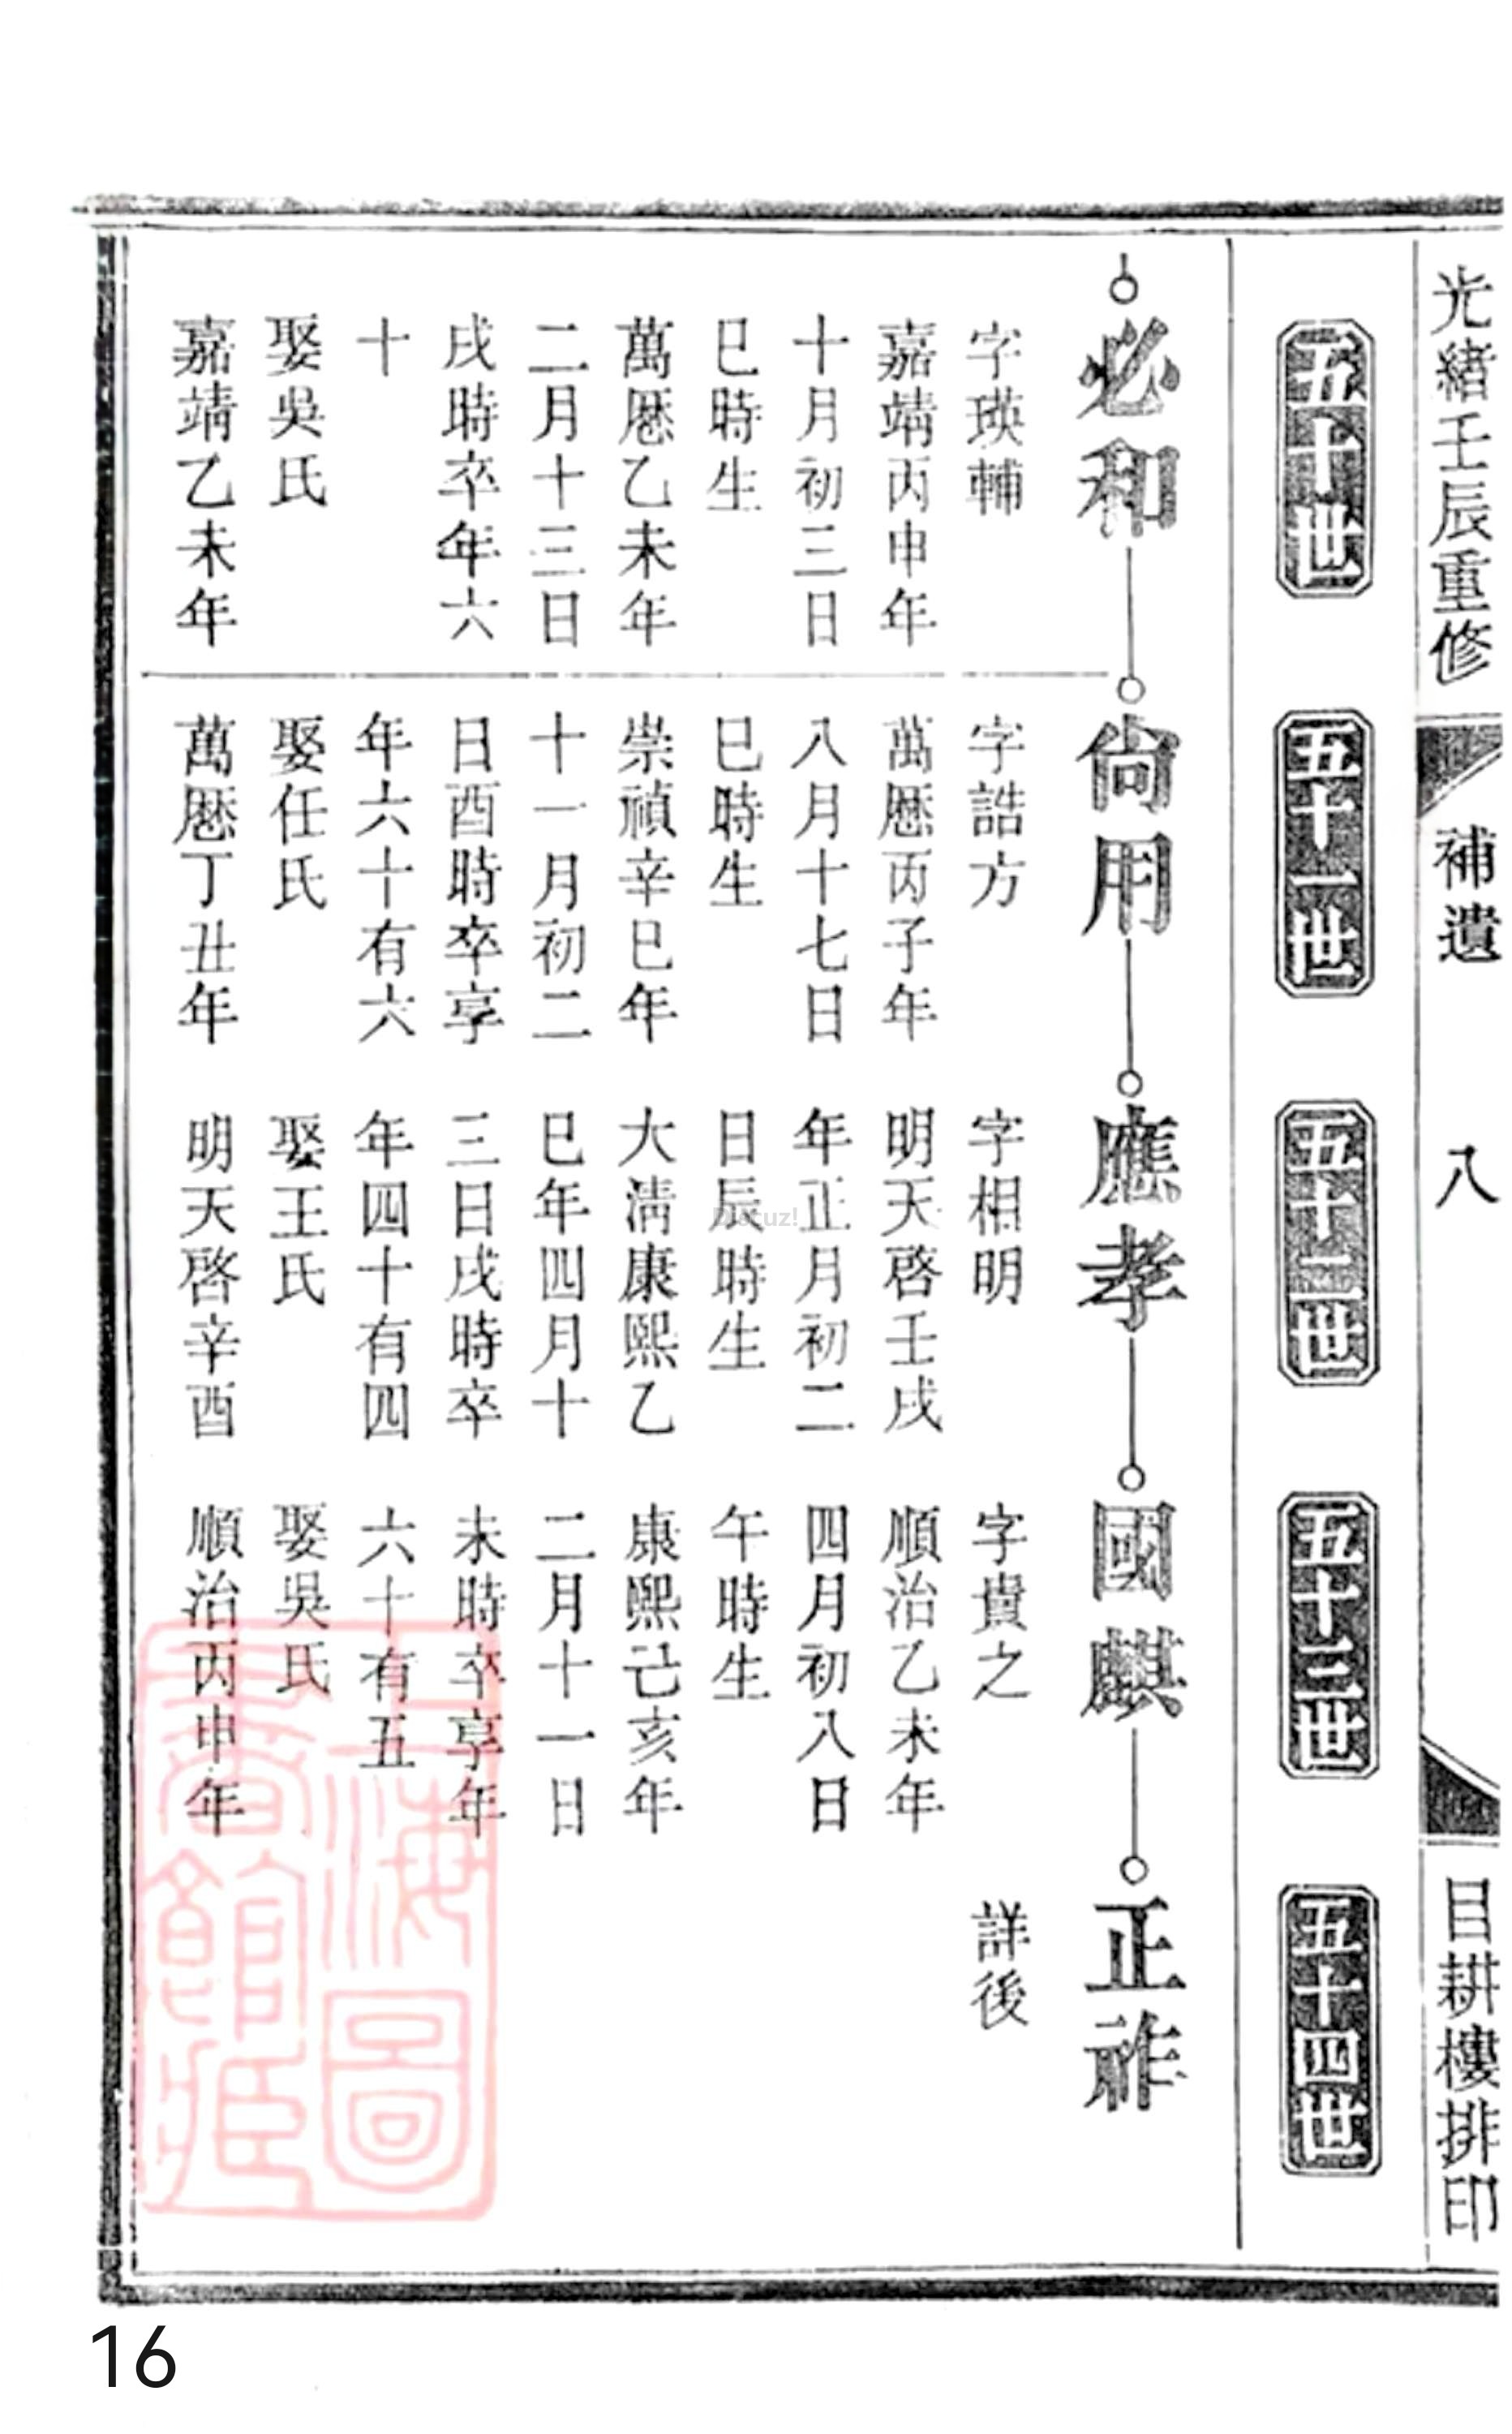 光緒壬辰重修
補遺
八
目耕樓排印
五十世
五十一世
五十二世
五十三世
五十四世
必和
字瑛輔
嘉靖丙申年
十月初三日
巳時生
萬厯乙未年
二月十三日
戌時卒年六
十
娶吳氏
嘉靖乙未年
尙用
字誥方
萬厯丙子年
八月十七日
巳時生
崇禎辛巳年
十一月初二
日酉時卒享
年六十有六
娶任氏
萬厯丁丑年
應孝
字相明
明天啓壬戌
年正月初二
日辰時生
大淸康熙乙
巳年四月十
三日戌時卒
年四十有四
娶王氏
明天啓辛酉
國麒
字貴之
順治乙未年
四月初八日
午時生
康熙己亥年
二月十一日
未時卒享年
六十有五
娶吳氏
順治丙申年
正祚
詳後
上海圖
書館藏
Discuz!
16